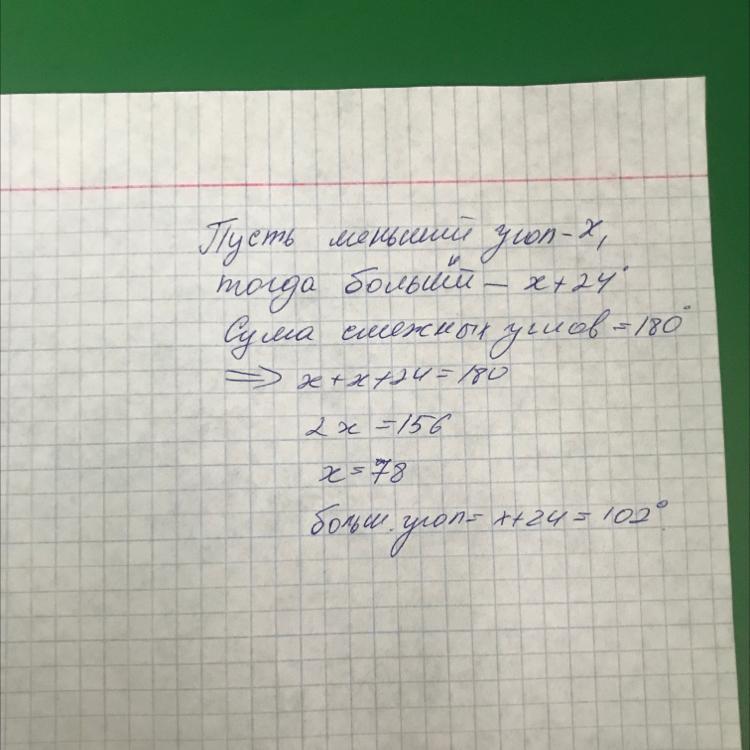 Пусть меньший угол - x,
тогда больший - x + 24°
Сума смежных углов = 180°
⇒ x + x + 24 = 180
2x = 156
x = 78
больш. угол = x + 24 = 102°